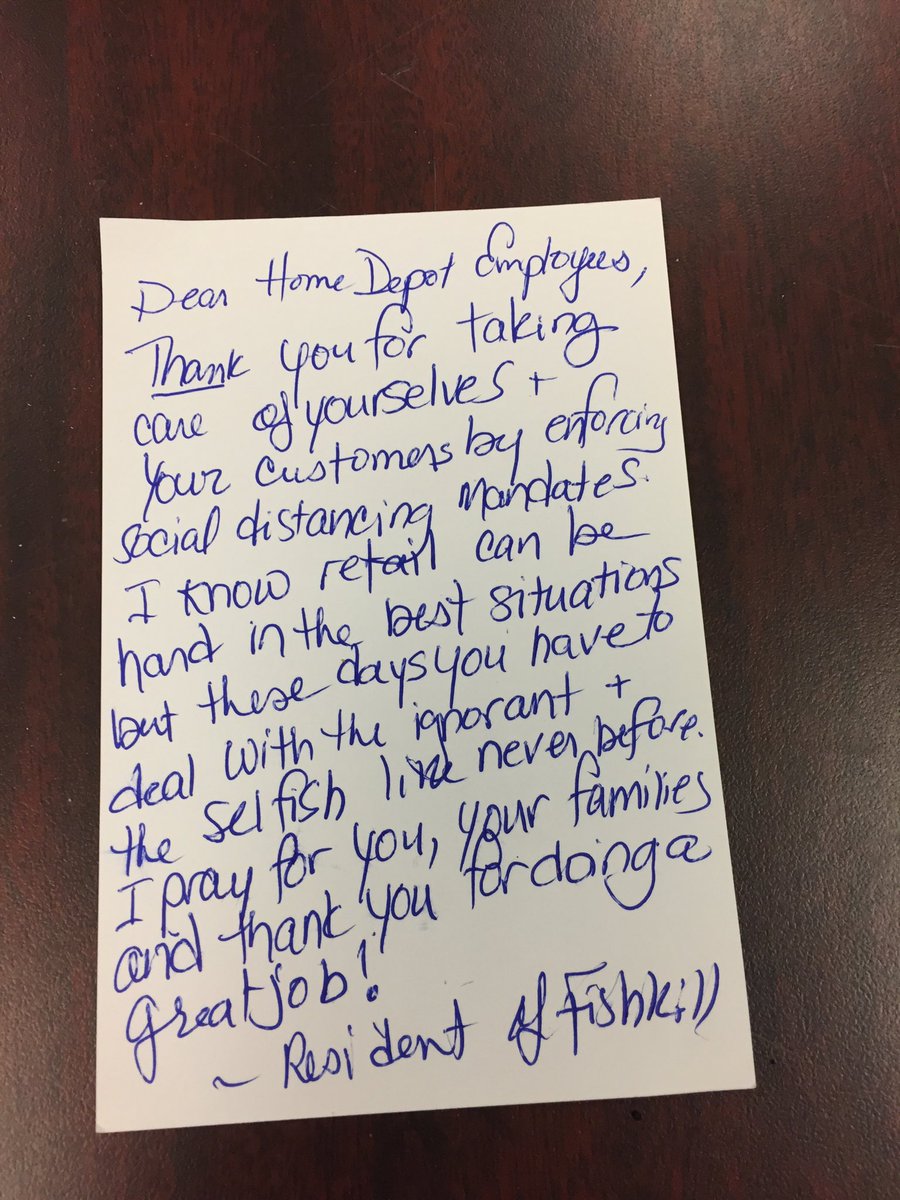 Dear Home Depot Employees,
Thank you for taking
care of yourselves +
your customers by enforcing
social distancing mandates.
I know retail can be
hard in the best situations
but these days you have to
deal with the ignorant +
the selfish like never before.
I pray for you, your families
and thank you for doing a
great job!
~ Resident of Fishkill